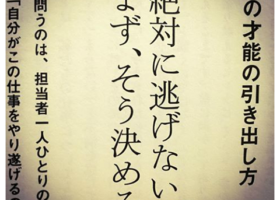 の才能の引き出し方
絶対に逃げない
まず、そう決める
問うのは、担当者一人ひとりの
「自分がこの仕事をやり遂げるの